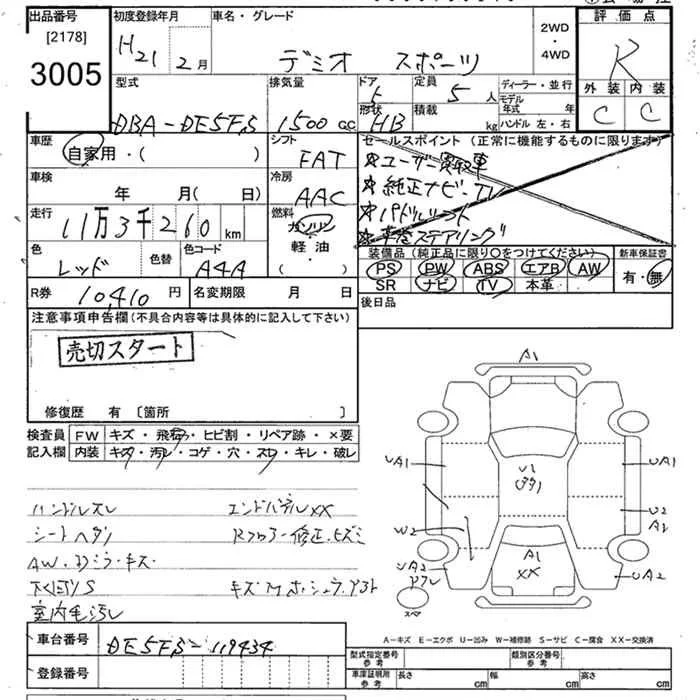 出品番号 初度登録年月 車名・グレード 2WD・4WD 評価点
[2178]
3005
H21年 2月 デミオ スポーツ R
型式 排気量 ドア 5 定員 5人 ディーラー・並行 外装 内装
DBA-DE5FS 1500cc 形状 HB 積載 kg モデル年式 年 C C
ハンドル 左・右
車歴 自家用・( ) シフト FAT
セールスポイント(正常に機能するものに限ります)
☆ユーザー買取車
☆純正ナビ・TV
☆パドルシフト
☆本革ステアリング
車検 年 月( 日) 冷房 AAC
走行 11万3千260km 燃料 ガソリン 軽油・( )
装備品(純正品に限り○をつけてください) 新車保証書
PS PW ABS エアB AW 有・無
SR ナビ TV 本革
色 レッド 色替 色コード A4A
R券 10,410円 名変期限 月 日 後日品
注意事項申告欄(不具合内容等は具体的に記入して下さい)
売切スタート
修復歴 有 〔箇所 〕
検査員 FW キズ・飛石・ヒビ割・リペア跡・×要
記入欄 内装 キズ・汚レ・コゲ・穴・スレ・キレ・破レ
ハンドルスレ エンドパネルXX
シートヘタリ Rフロアー修正、ヒズミ
室内毛汚レ
A1
UA1 U1 UA1
W2 U2
A2
UA2 A1 UA2
XX
スペア
A-キズ E-エクボ U-凹み W-補修跡 S-サビ C-腐食 XX-交換済
車台番号 DE5FS-119434
登録番号
型式指定番号 参考 類別区分番号 参考
車庫証明用 参考 長さ cm 幅 cm 高さ cm